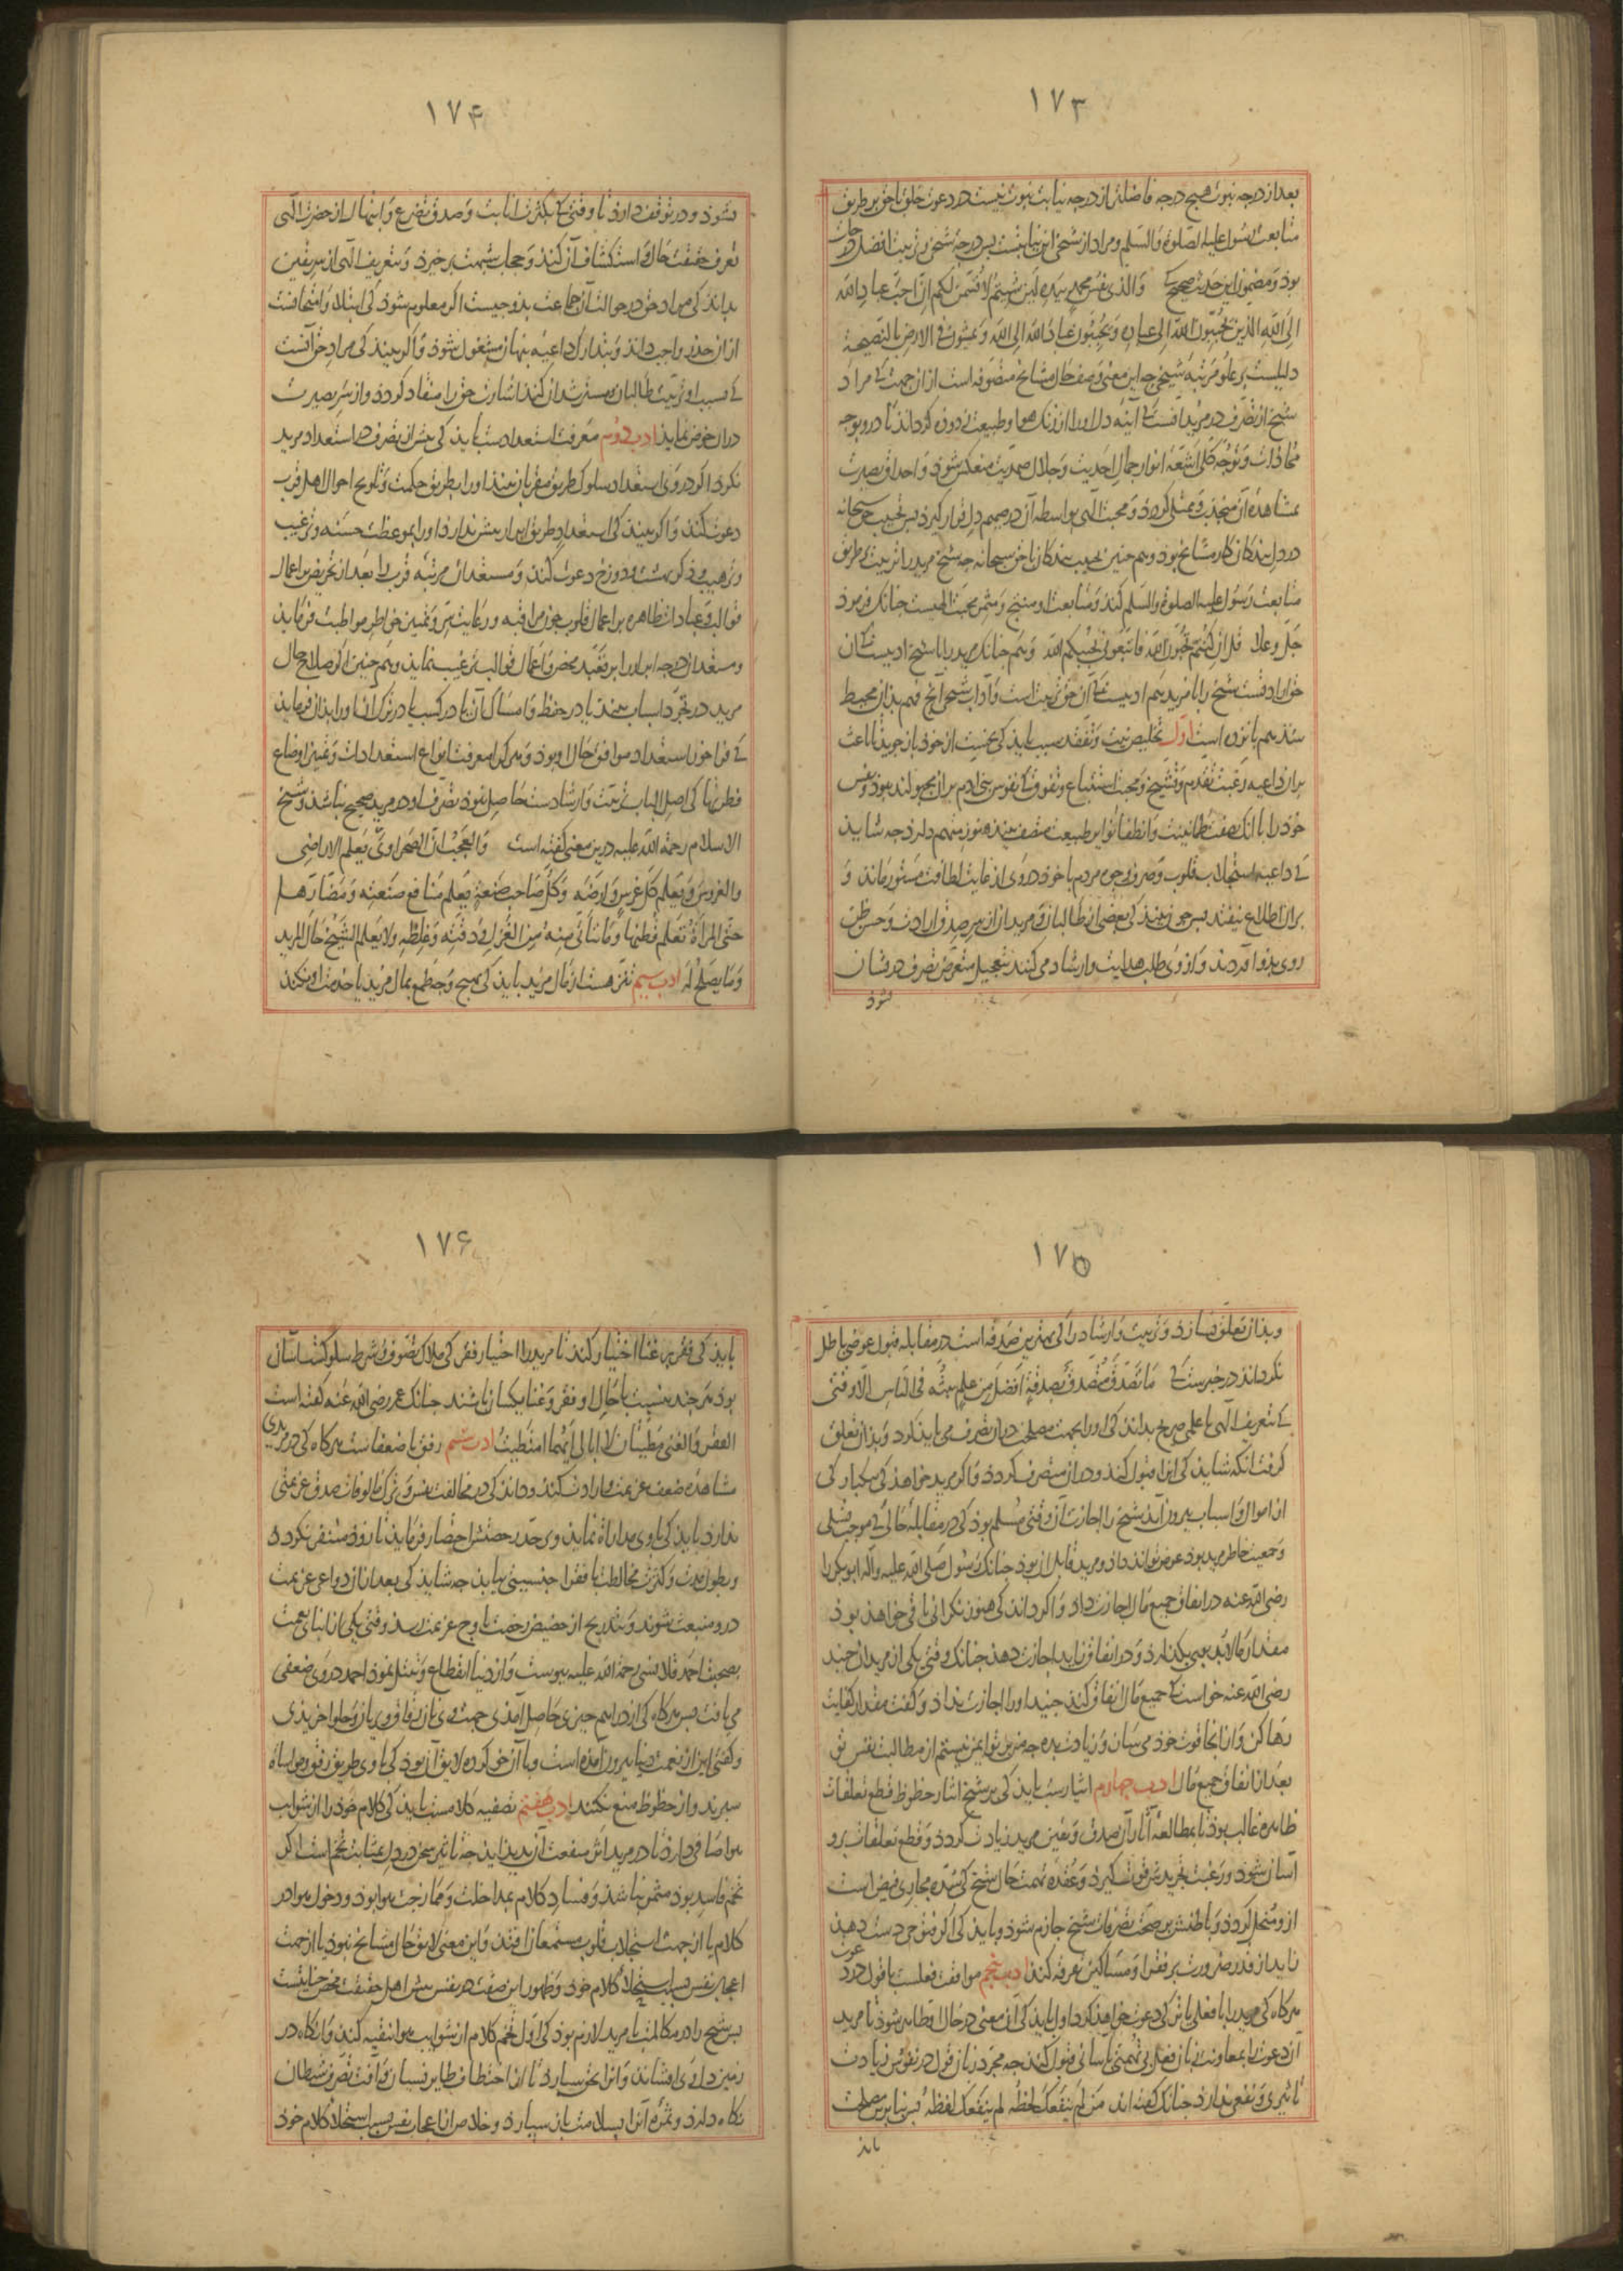 ١٧٣
بعد از درجه نبوت هیچ درجه فاضلتر از درجه نیابت نبوت نیست در دعوت خلق با حق بر طریق
متابعت رسول علیه الصلوة والسلم ومراد از شیخی این نیابتست پس درجۀ شیخی وتربیت افضل درجات
بود ومضمون این حدیث صحیح کی والذی نفس محمد بیده لین شیتم لاقسمن لکم ان احب عباد الله
الی الله الذین یحببون الله الی عباده ویحببون عباد الله الی الله ویمشون فی الارض بالنصیحة
دلیلست بر علو مرتبه شیخی چه این معنی وصف حال مشایخ متصوفه است از ان جهت کی مراد
شیخ از تصرف در مرید آنست کی آینه دل او را از زنک هوا وطبیعت زدوده کرداند تا درو بوجه
محاذات وتوجه کلی اشعۀ انوار جمال احدیت وجلال صمدیت منعکس شود واحداق بصیرت
بمشاهدۀ آن منجذب وممتلی کردد ومحبت الهی بواسطه آن در صمیم دل قرار کیرد پس تحبیب حق سبحانه
در دل بندکان کار مشایخ بود وهم چنین تحبیب بندکان با حق سبحانه چه شیخ مرید را تربیت بر طریق
متابعت رسول علیه الصلوة والسلم کند ومتابعت او منتج ومثمر محبت الهیست چنانک فرمود
جل وعلا قل ان کنتم تحبون الله فاتبعونی یحببکم الله وهم چنانک مرید را با شیخ ادبیست کی آن
حق ارادتست شیخ را با مرید هم ادبیست کی آن حق تربیت است وآداب شیخی آنچ فهم بذان محیط
شد هم پانزده است اول تخلیص نیت وتفقد سبب باید کی نخست از خود باز جوید تا باعث
بر آن داعیه رغبت تقدم وتشیخ ومحبت استتباع وتفوق کی نفوس بنی ادم بر ان مجبولند نبود ونفس
خود را با انک بصفت طمانینت وانطفا نوایر طبیعت متصف بیند هنوز متهم دارد چه شاید
کی داعیه استجلاب قلوب وصرف وجوه مردم با خود در وی از غایت لطافت مستور ماند و
بر ان اطلاع نیفتد پس چون بیند کی بعضی از طالبان ومریدان از سر صدق ارادت وحسن ظن
روی بذو آوردند واز وی طلب هدایت وارشاد می کنند بتعجیل متعرض تصرف در ایشان
نشود
١٧۴
نشود ودر توقف دارد تا وقتی کی بکثرت انابت وصدق تضرع وابتهال از حضرت الهی
تعرف حقیقت حال واستکشاف آن کند وحجاب شبهت برخیزد وبتعریف الهی از سر یقین
بداند کی مراد حق در حوالت آن جماعت بذو چیست اکر معلوم شود کی ابتلا وامتحانست
از ان حذر واجب داند وبتدارک داعیه پنهان مشغول شود واکر بیند کی مراد حق آنست
کی بسبب او تربیت طالبان ومسترشدان کند اشارت حق را منقاد کردد واز سر بصیرت
در ان خوض نماید ادب دوم معرفت استعدادست باید کی پیش از تصرف در استعداد مرید
نکرد اکر در وی استعداد سلوک طریق مقربان بیند او را بطریق حکمت وتلویح احوال اهل قرب
دعوت کند واکر بیند کی استعداد طریق ابرار بیش ندارد او را بموعظت حسنه وترغیب
وترهیب وذکر بهشت ودوزخ دعوت کند ومستعدان مرتبه قرب را بعد از تحریض بر اعمال
قوالب وعبادات ظاهره بر اعمال قلوب چون مراقبه ورعایت سر وتمییز خواطر مواظبت فرماید
ومستعدان درجه ابرار را بر تعبد محض واعمال قوالب ترغیب نماید وهم چنین اکر صلاح حال
مرید در تجرد اسباب بیند یا در حفظ وامساک آن یا در کسب یا در ترک آن او را بذان فرماید
کی فراخور استعداد وموافق حال او بود وهر کی را معرفت انواع استعدادات وتمییز اوضاع
فطرتها کی اصل الباب تربیت وارشادست حاصل نبود تصرف او در مرید صحیح نباشد وشیخ
الاسلام رحمة الله علیه درین معنی کفته است والعجب ان الصحراوی یعلم الاراضی
والغروس ویعلم کل غرس وارضه وکل صاحب صنعة یعلم منافع صنعته ومضارها
حتی المرأة تعلم قطنها وما یتأتی منه من الغزل فی دقته وغلظه ولا یعلم الشیخ حال المرید
وما یصلح له ادب سیم تنزهست از مال مرید باید کی بهیچ وجه طمع بمال مرید یا خدمت او نکند
١٧۵
وبذان تعلق نسازد وتربیت وارشاد را کی بهترین صدقه است در مقابله قبول عوضی باطل
نکرداند در خبرست کی ما تصدق متصدق بصدقة افضل من علم یبثه فی الناس الا وقتی
کی بتعریف الهی یا علمی صریح بداند کی او را بجهت مصلحت در ان تصرف می باید کرد وبذان تعلق
کرفت انکه شاید کی انرا قبول کند ودر ان متصرف کردد واکر مرید خواهد کی بیکبارکی
از اموال واسباب بیرون آید شیخ را اجازت آن وقتی مسلم بود کی در مقابله حالی کی موجب تسلی
وجمعیت خاطر مرید بود عوض تواند داد ومرید قابل ان بود چنانک رسول صلی الله علیه وآله ابوبکر را
رضی الله عنه در انفاق جمیع مال اجازت داد واکر داند کی هنوز نکرانی باقی خواهذ بود
مقدار ما لابد بوی بکذارد ودر انفاق زاید اجازت دهد چنانک وقتی یکی از مریدان جنید
رضی الله عنه خواست کی جمیع مال انفاق کند جنید او را اجازت نداد وکفت مقدار کفایت
رها کن وازانجا قوت خود می ستان وزیادت بده چه من بر تو ایمن نیستم از مطالبت نفس تو
بعد از انفاق جمیع مال ادب چهارم ایثارست باید کی بر شیخ ایثار حظوظ وقطع تعلقات
ظاهره غالب بود تا بمطالعۀ آثار آن صدق ویقین مرید زیادت کردد وقطع تعلقات برو
آسان شود ورغبت تجریدش قوت کیرد وعقدۀ تهمت حال شیخ کی سدۀ مجاری فیض است
ازو منحل کردد وباطنش بر صحت تصرفات شیخ جازم شود وباید کی اکر فتوحی دست دهد
زاید از قدر ضرورت بر فقرا ومساکین تفرقه کند ادب پنجم موافقت فعلست با قول در دعوت
هر کاه کی مرید را با فعلی یا ترکی دعوت خواهد کرد اول باید کی آن معنی در حال او ظاهر شود تا مرید
آن دعوت را بمعاونت زبان فعل بی تهمتی باسانی قبول کند چه مجرد زبان قول در نفوس زیادت
تاثیری ونفعی ندارد چنانک کفته اند من لم ینفعک لحظه لم ینفعک لفظه پس بنا برین مصلحت
باید
١٧۶
باید کی فقر بر غنا اختیار کند تا مرید را اختیار فقر کی ملاک تصوف وشرط سلوکست آسان
بود هر چند بنسبت با حال او فقر وغنا یکسان باشند چنانک عمر رضی الله عنه کفته است
الفقر والغنی مطیتان لا ابالی ایهما امتطیت ادب ششم رفق با ضعفاست هر کاه کی در مریدی
مشاهده ضعف عزیمت وارادت کند وداند کی در مخالفت نفس وترک مالوفات صدق عزیمتی
ندارد باید کی با وی مداراة نماید وبر حد رخصتش اختصار فرماید تا زود متنفر نکردد
وبطول مدت وکثرت مخالطت با فقرا جنسیتی بیابد چه شاید کی بعد از ان دواعی عزیمت
درو منبعث شوند وبتدریج از حضیض رخصت باوج عزیمت رسد وقتی یکی از ابنای نعمت
بصحبت احمد قلانسی رحمة الله علیه پیوست واز دنیا انقطاع وتبتل نمود احمد در وی ضعفی
می یافت پس هر کاه کی از دراهم چیزی حاصل آمدی جهت وی نان رقاق وبریان وحلوا خریدی
وکفتی این از نعمت دنیا بیرون آمده است وبا آن خو کرده لایق آن بود کی با وی طریق رفق ومواساة
سپرند واز حظوظ منع نکنند ادب هفتم تصفیه کلامست باید کی کلام خود را از شوایب
هوا صافی دارد تا در مرید اثر منفعت آن پدید اید چه تاثیر سخن در دل بمثابت تخم است اکر
تخم فاسد بود مثمر نباشد وفساد کلام بمداخلت وممازجت هوا بود ودخول هوا در
کلام یا از جهت استجلاب قلوب مستمعان افتد واین معنی لایق حال مشایخ نبود یا از جهت
اعجاب نفس بسبب استحلاء کلام خود وظهور این صفت در نفس پیش اهل حقیقت محض خیانتست
پس شیخ را در مکالمت با مرید لازم بود کی اول تخم کلام از شوایب هوا تنقیه کند وانکاه در
زمین دل وی افشاند وانرا بحق سپارد تا از اختطاف طایر نسیان وآفت تصرف شیطان
نکاه دارد وثمره آنرا بسلامت باز سپارد وخلاص از اعجاب نفس بسبب استحلاء کلام خود